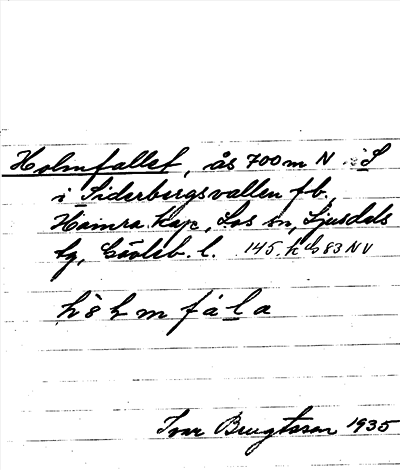 Holmfallet, ås 700 m N i S
i Siderbergsvallen fb.
Hamra kap, Los sn, Ljusdals
tg, Gävleb. l. 145. h b 83 NV
Ivar Brugtsson 1935